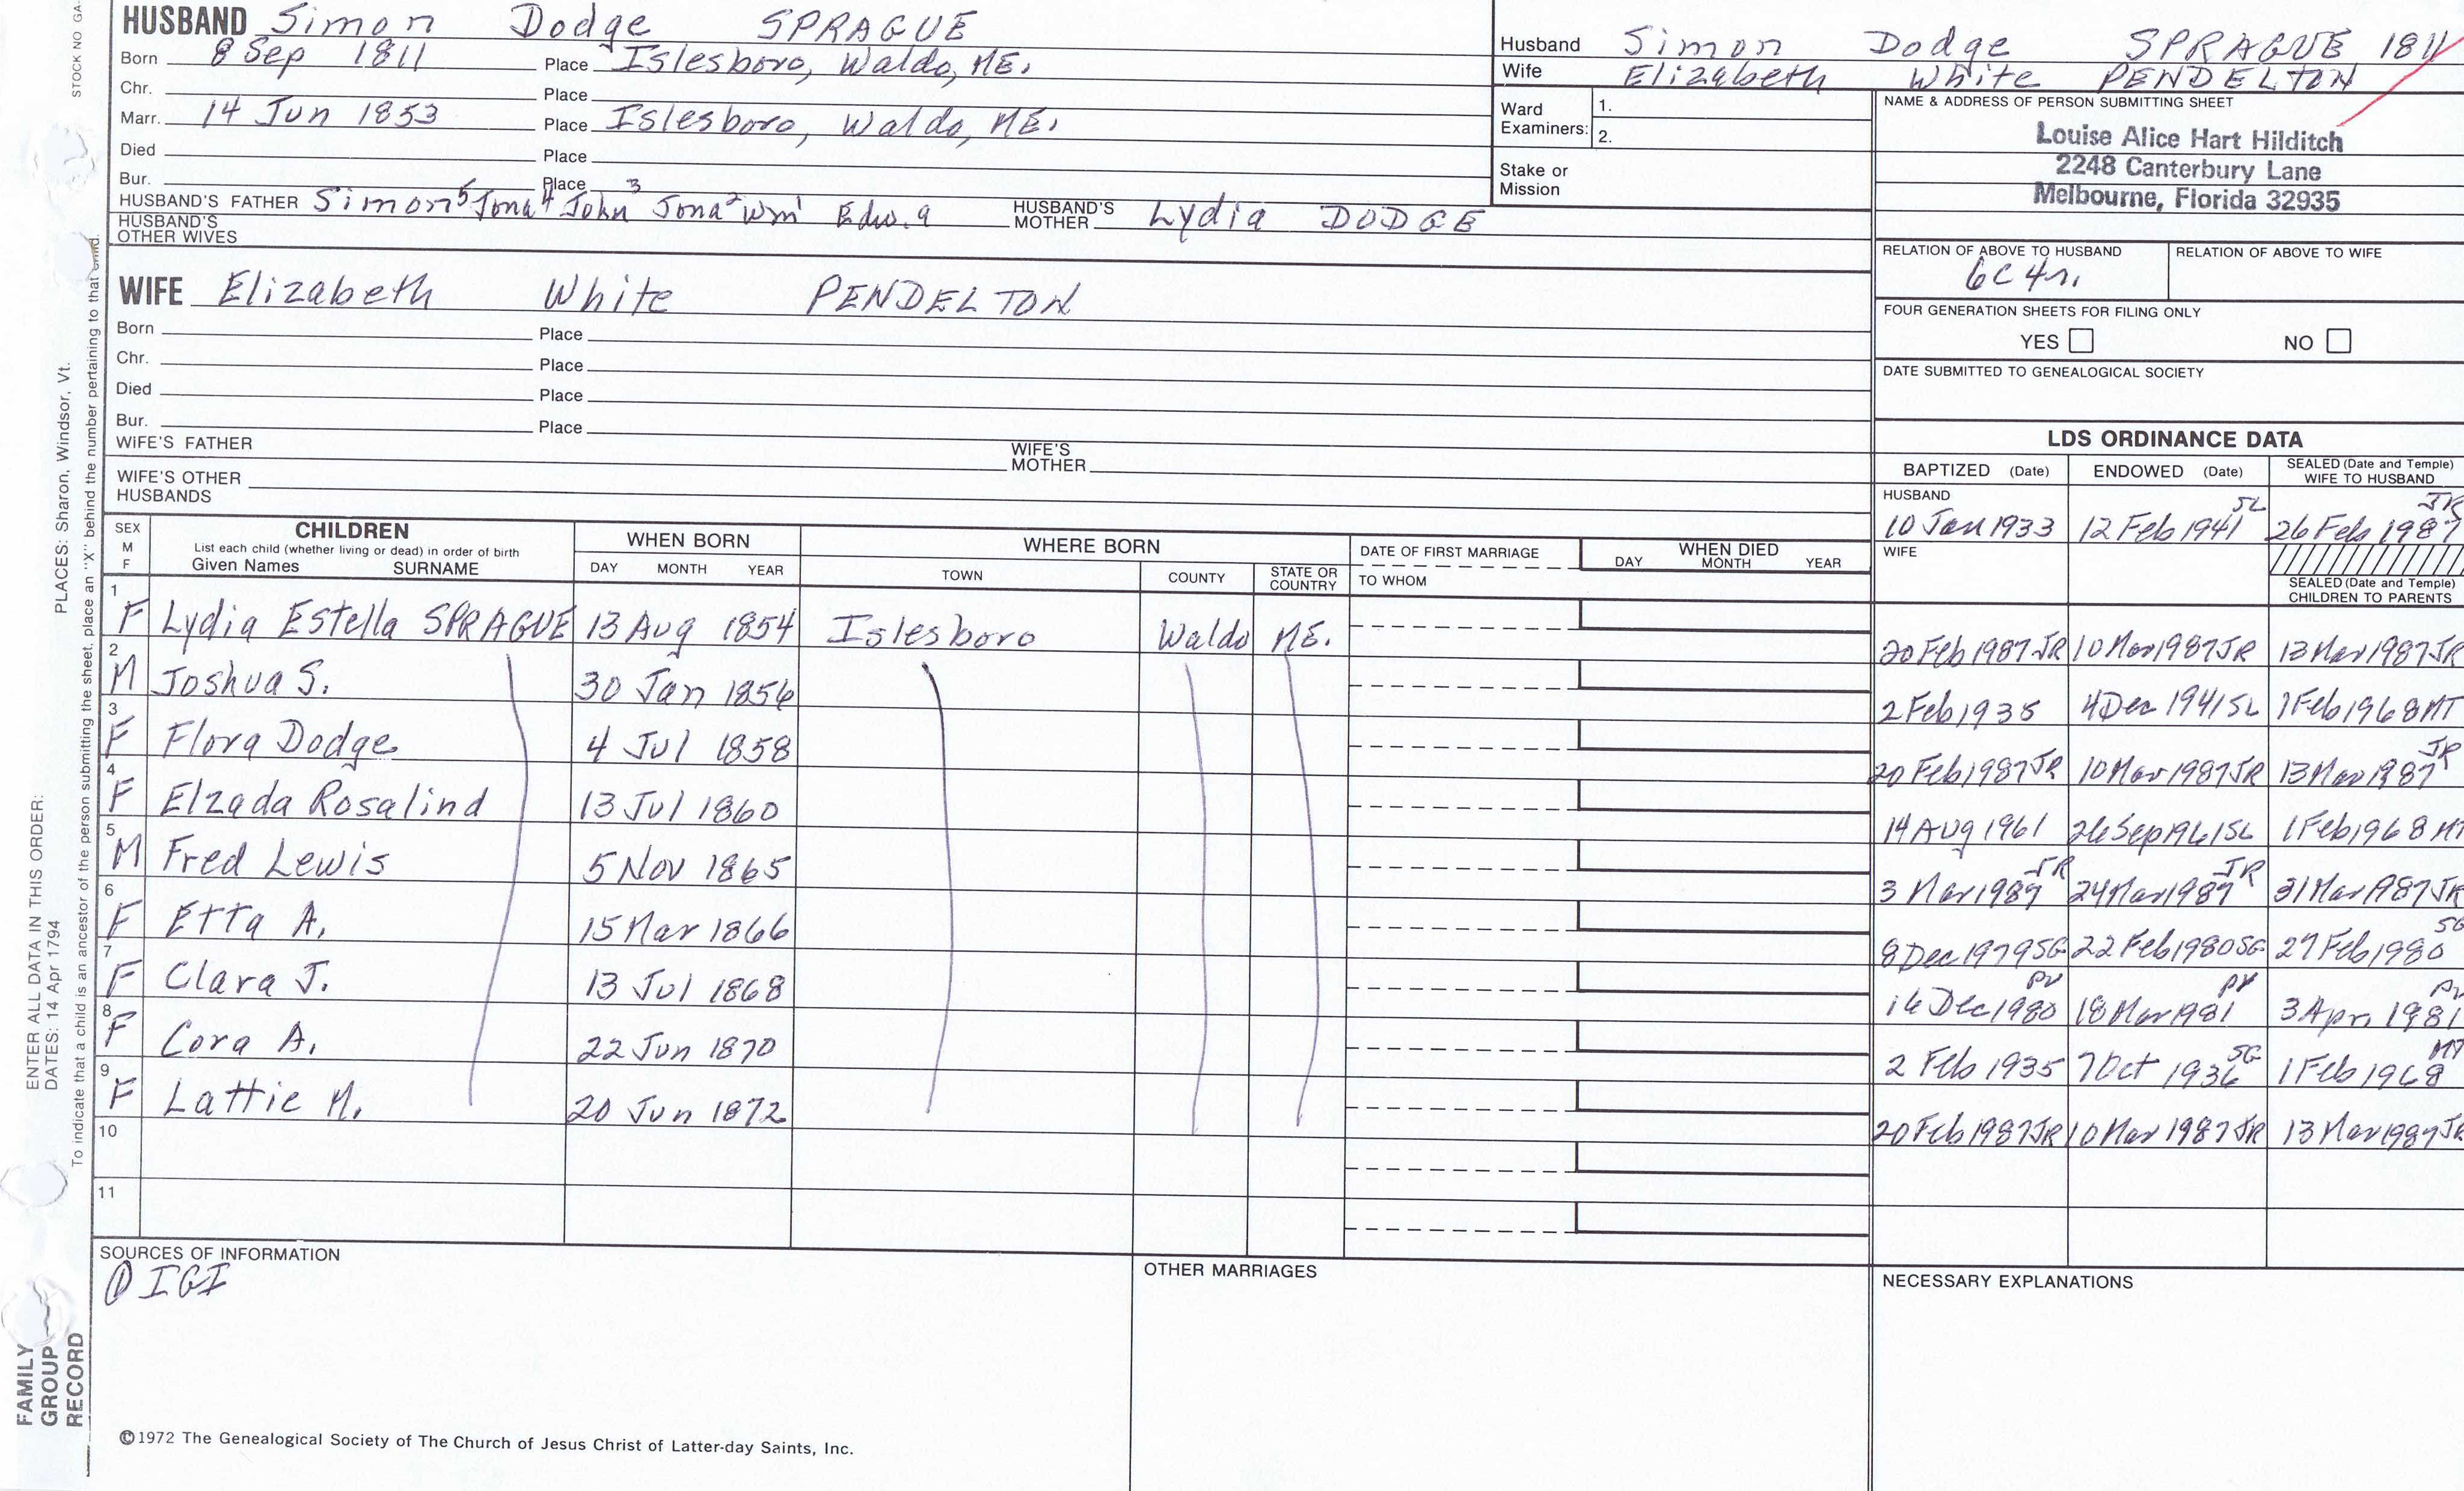 HUSBAND Simon Dodge SPRAGUE
Born 8 Sep 1811 Place Islesboro, Waldo, ME.
Chr. Place
Marr. 14 Jun 1853 Place Islesboro, Waldo, ME.
Died Place
Bur. Place
HUSBAND'S FATHER Simon⁵ Jona⁴ John³ Jona² Wm¹ Edw.a HUSBAND'S MOTHER Lydia DODGE
HUSBAND'S OTHER WIVES
WIFE Elizabeth White PENDELTON
Born Place
Chr. Place
Died Place
Bur. Place
WIFE'S FATHER WIFE'S MOTHER
WIFE'S OTHER HUSBANDS
Husband Simon Dodge SPRAGUE 1811
Wife Elizabeth White PENDELTON
Ward Examiners: 1.
2.
Stake or Mission
NAME & ADDRESS OF PERSON SUBMITTING SHEET
Louise Alice Hart Hilditch
2248 Canterbury Lane
Melbourne, Florida 32935
RELATION OF ABOVE TO HUSBAND RELATION OF ABOVE TO WIFE
6C4r.
FOUR GENERATION SHEETS FOR FILING ONLY
YES NO
DATE SUBMITTED TO GENEALOGICAL SOCIETY
LDS ORDINANCE DATA
BAPTIZED (Date) ENDOWED (Date) SEALED (Date and Temple) WIFE TO HUSBAND
HUSBAND
10 Jan 1933 12 Feb 1941 SL 26 Feb 1987 JR
WIFE
SEALED (Date and Temple) CHILDREN TO PARENTS
SEX M F CHILDREN WHEN BORN WHERE BORN DATE OF FIRST MARRIAGE WHEN DIED
List each child (whether living or dead) in order of birth
Given Names SURNAME DAY MONTH YEAR TOWN COUNTY STATE OR COUNTRY TO WHOM DAY MONTH YEAR
1 F Lydia Estella SPRAGUE 13 Aug 1854 Islesboro Waldo ME. 20 Feb 1987 JR 10 Mar 1987 JR 13 Mar 1987 JR
2 M Joshua S. 30 Jan 1856 2 Feb 1935 4 Dec 1941 SL 1 Feb 1968 MT
3 F Flora Dodge 4 Jul 1858 20 Feb 1987 JR 10 Mar 1987 JR 13 Mar 1987 JR
4 F Elzada Rosalind 13 Jul 1860 14 Aug 1961 26 Sep 1961 SL 1 Feb 1968 MT
5 M Fred Lewis 5 Nov 1865 3 Mar 1987 JR 24 Mar 1987 JR 31 Mar 1987 JR
6 F Etta A. 15 Mar 1866 8 Dec 1979 SG 22 Feb 1980 SG 27 Feb 1980 SG
7 F Clara J. 13 Jul 1868 16 Dec 1980 PV 18 Mar 1981 PV 3 Apr. 1981 PV
8 F Cora A. 22 Jun 1870 2 Feb 1935 7 Oct 1936 SG 1 Feb 1968 MT
9 F Lattie M. 20 Jun 1872 20 Feb 1987 JR 10 Mar 1987 JR 13 Mar 1987 JR
10
11
SOURCES OF INFORMATION
① IGI
OTHER MARRIAGES
NECESSARY EXPLANATIONS
©1972 The Genealogical Society of The Church of Jesus Christ of Latter-day Saints, Inc.
STOCK NO GA-
PLACES: Sharon, Windsor, Vt.
ENTER ALL DATA IN THIS ORDER:
DATES: 14 Apr 1794
To indicate that a child is an ancestor of the person submitting the sheet, place an "X" behind the number pertaining to that child.
FAMILY
GROUP
RECORD